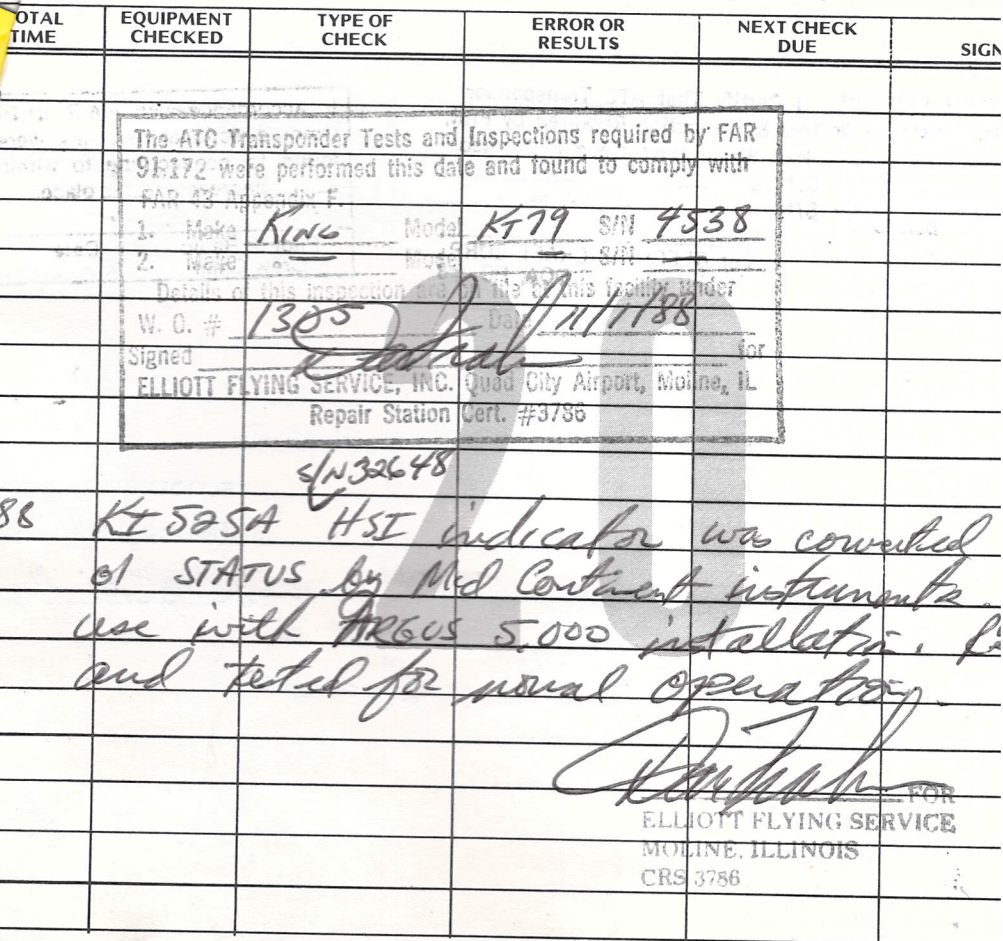 OTAL TIME EQUIPMENT CHECKED TYPE OF CHECK ERROR OR RESULTS NEXT CHECK DUE SIGN
The ATC Transponder Tests and Inspections required by FAR
91.172 were performed this date and found to comply with
FAR 43 Appendix F.
1. Make KING Model KT79 S/N 4538
2. Make — Model — S/N —
Details of this inspection are on file at this facility under
W. O. # 1305 Date 11/7/88
Signed for
ELLIOTT FLYING SERVICE, INC. Quad City Airport, Moline, IL
Repair Station Cert. #3786
S/N 32648
88 KI 525A HSI indicator was converted
01 STATUS by Mid Continent instruments.
use with ARGUS 5,000 installation.
and tested for normal operation.
FOR
ELLIOTT FLYING SERVICE
MOLINE, ILLINOIS
CRS 3786
20